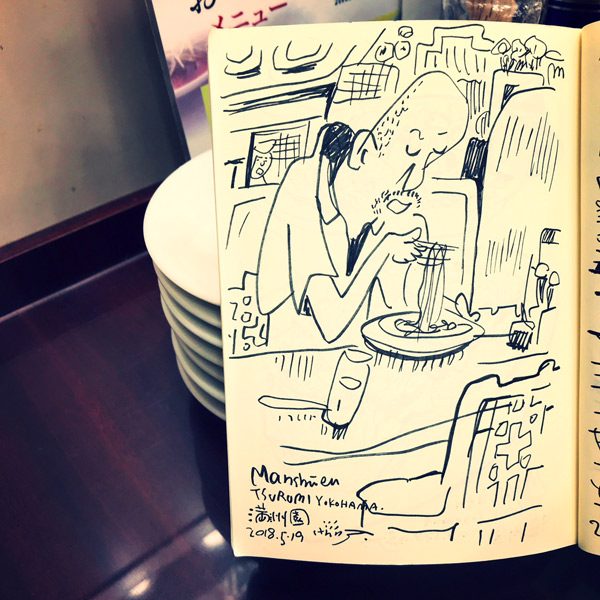 メニュー
Manshūen
TSURUMI YOKOHAMA.
満州園
2018.5.19